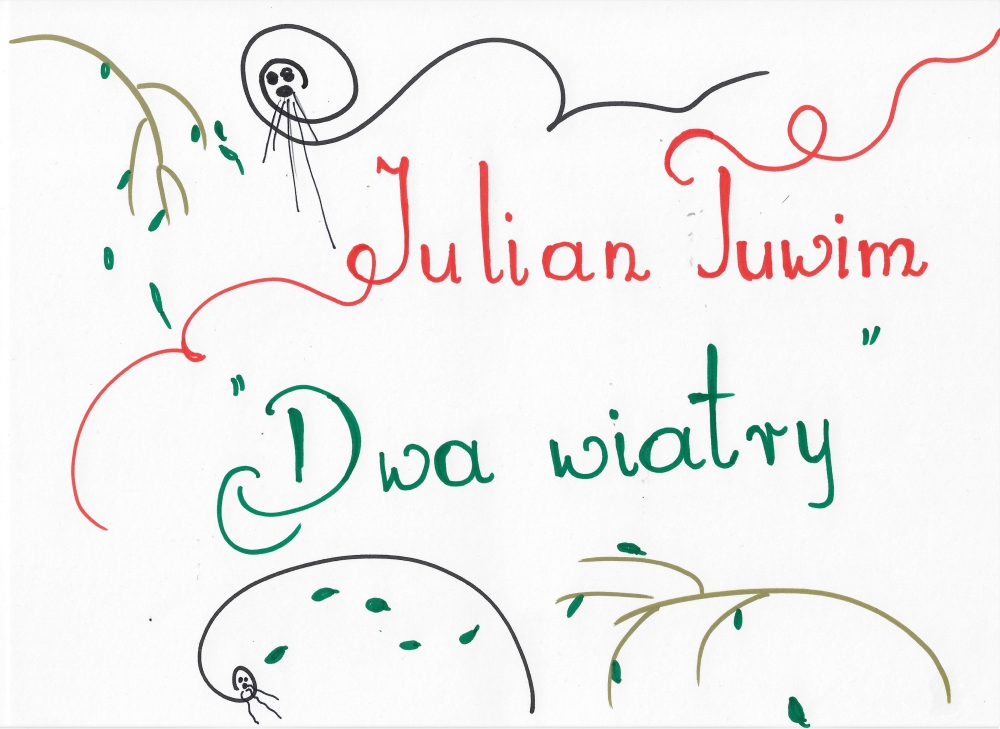 Julian Tuwim
"Dwa wiatry"